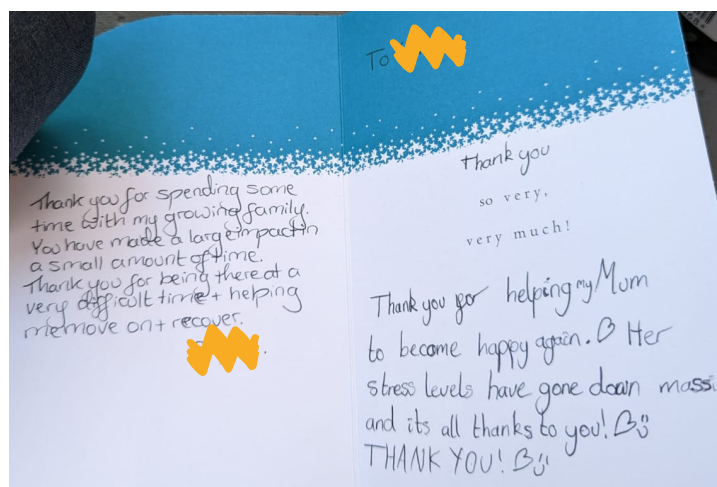 Thank you for spending some
time with my growing family.
You have made a large impact in
a small amount of time.
Thank you for being there at a
very difficult time + helping
me move on + recover.
To
Thank you
so very,
very much!
Thank you for helping my Mum
to become happy again. Her
stress levels have gone down massi
and its all thanks to you!
THANK YOU!